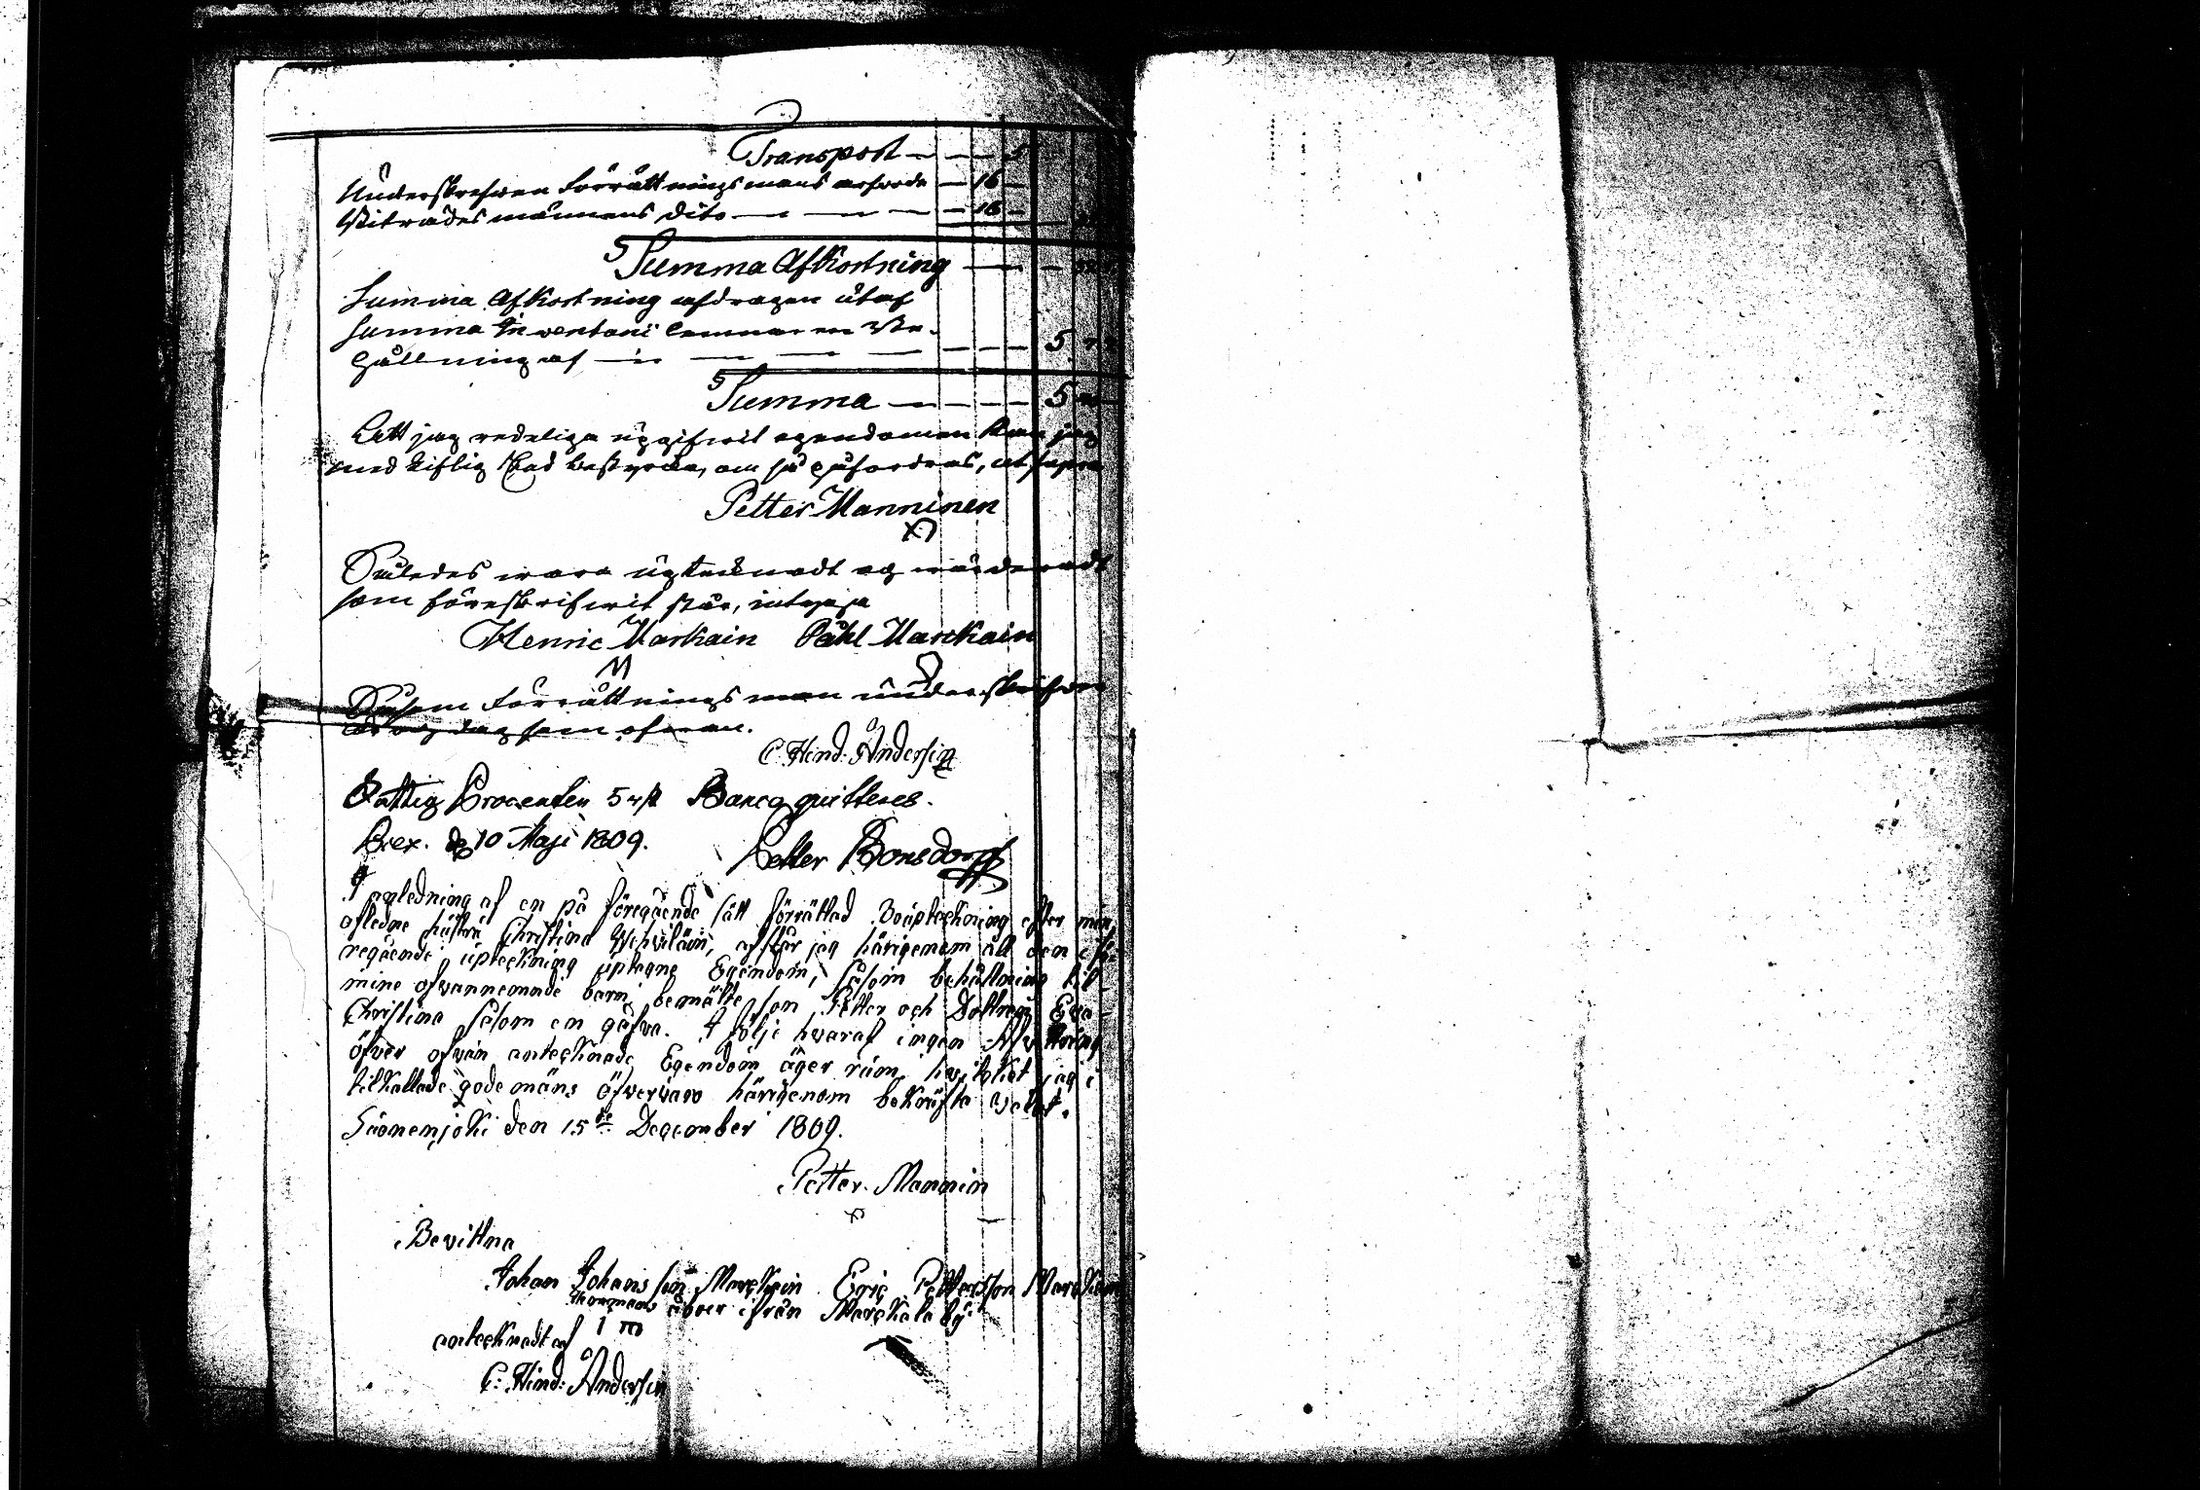 Transport — — 5
Underskrefwen Förrättnings mans arfvode — 16 —
Biträdes männens dito — — — — 16 —
Summa Afkortning — —
Summa Afkortning afdragen utaf
Summa Inventarii lemnar en Be-
hållning af — — — — — 5
Summa — — — 5
Att jag redeliga uppgifwit egendomen kan jag
med liflig Ed bestyrka, om så påfordras,
Petter Manninen
Således wara upteknadt og wärderadt
som föreskrifwit står, intyga
Henric Markain Påhl Marckain
Såsom Förrättnings man underskrifwer
År og dag som ofvan.
C. Hind: Andersin
Fattig Procenten 5 Banco quitteres.
Brex. d 10 Maji 1809. Petter Bonsdorff
I anledning af en på föregående sätt förrättad Boupteckning efter min
afledne hustru Christina afstår jag härigenom all den i fö-
regående upteckning uptagne Egendom, såsom behållning til
mine ofvannemnde barn, bemälte son Petter och Dottren Eva
Christina såsom en gåfva. I följe hvaraf ingen
öfver ofvan antecknade Egendom äger rum, hvilket jag i
tilkallade gode mäns öfvervaro härigenom bekräfta velat.
den 15de December 1809.
Petter Mannin
Bevittna
Johan Johans son Marckain Eric Pettersson Marckain
åboer ifrån Marckala by
antecknadt af
C: Hind: Andersin